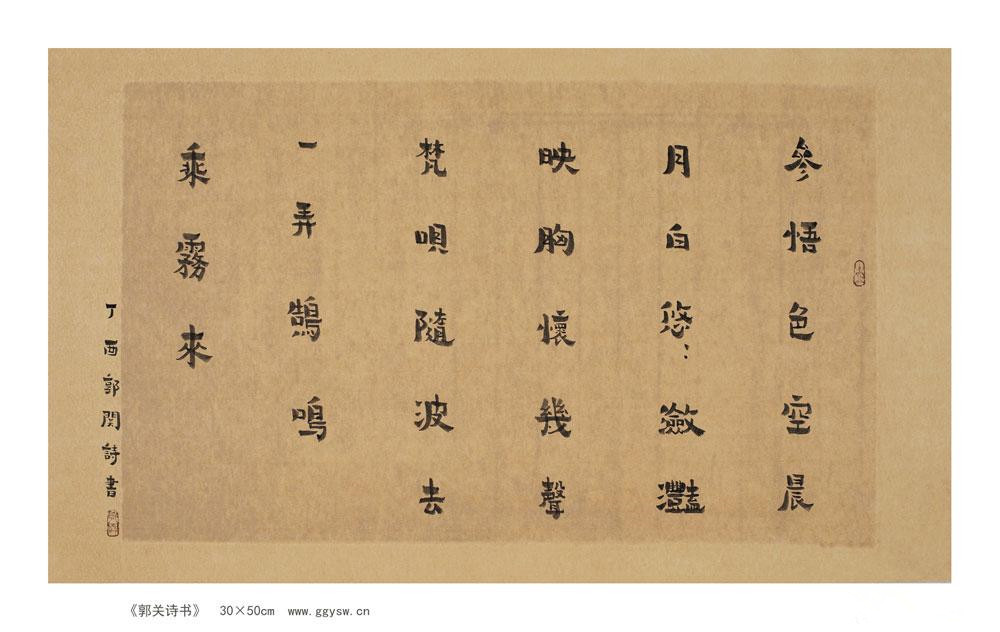 參悟色空晨
月白悠:瀲灩
映胸懷幾聲
梵唄隨波去
一弄鵠鳴
乘霧來
丁酉郭関詩書
《郭关诗书》 30×50cm www.ggysw.cn